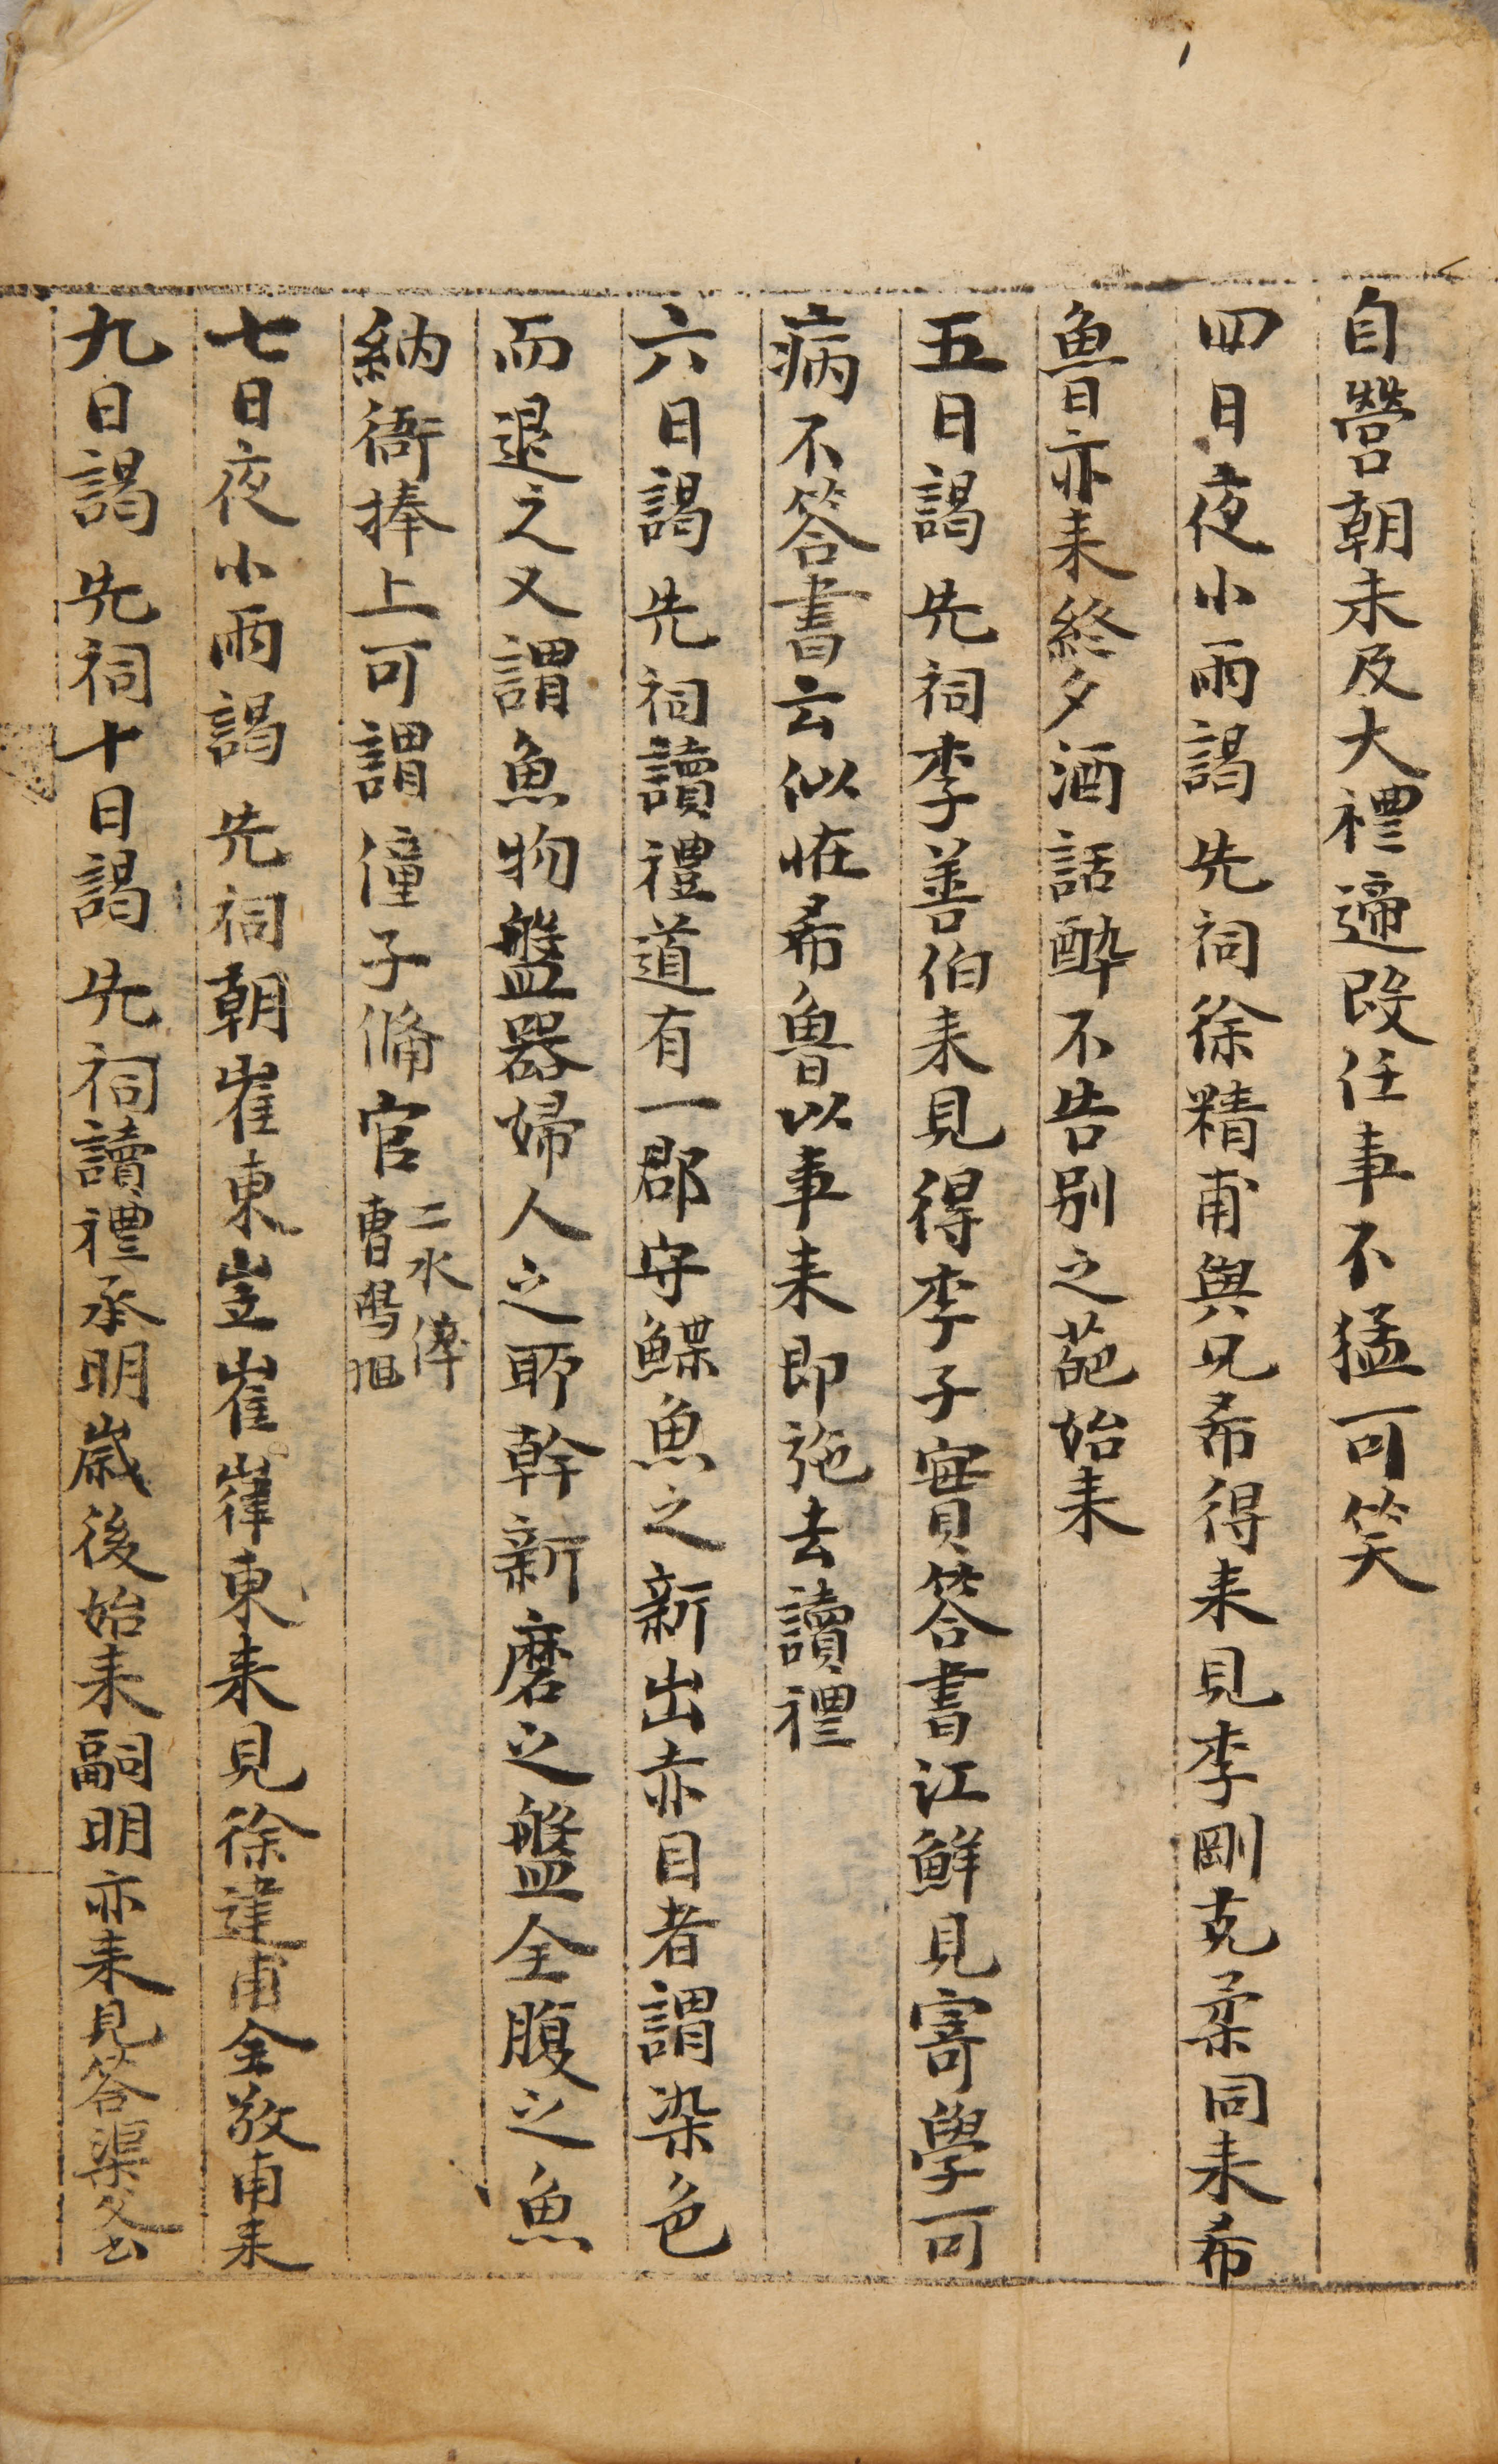 自營朝未及大禮遞改任事不猛可笑
四日夜小雨謁 先祠徐精甫與兄希得来見李剛克柔同来希
魯亦来終夕酒話酔不告别之葩始来
五日謁 先祠李善伯来見得李子實答書江鮮見寄學可
病不答書云似在希魯以事来即施去讀禮
六日謁 先祠讀禮道有一郡守鰈魚之新出赤目者謂染色
而退之又謂魚物盤器婦人之所幹新磨之盤全腹之魚
納衙捧上可謂僮子脩官
二水倅
曹
七日夜小雨謁 先祠朝崔東豈崔嵂東来見徐達甫金敬甫来
九日謁 先祠十日謁 先祠讀禮承明嵗後始来嗣明亦来見答渠父書